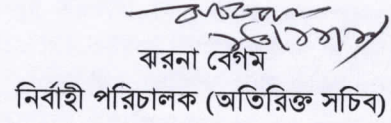 ঝরনা বেগম
নির্বাহী পরিচালক (অতিরিক্ত সচিব)